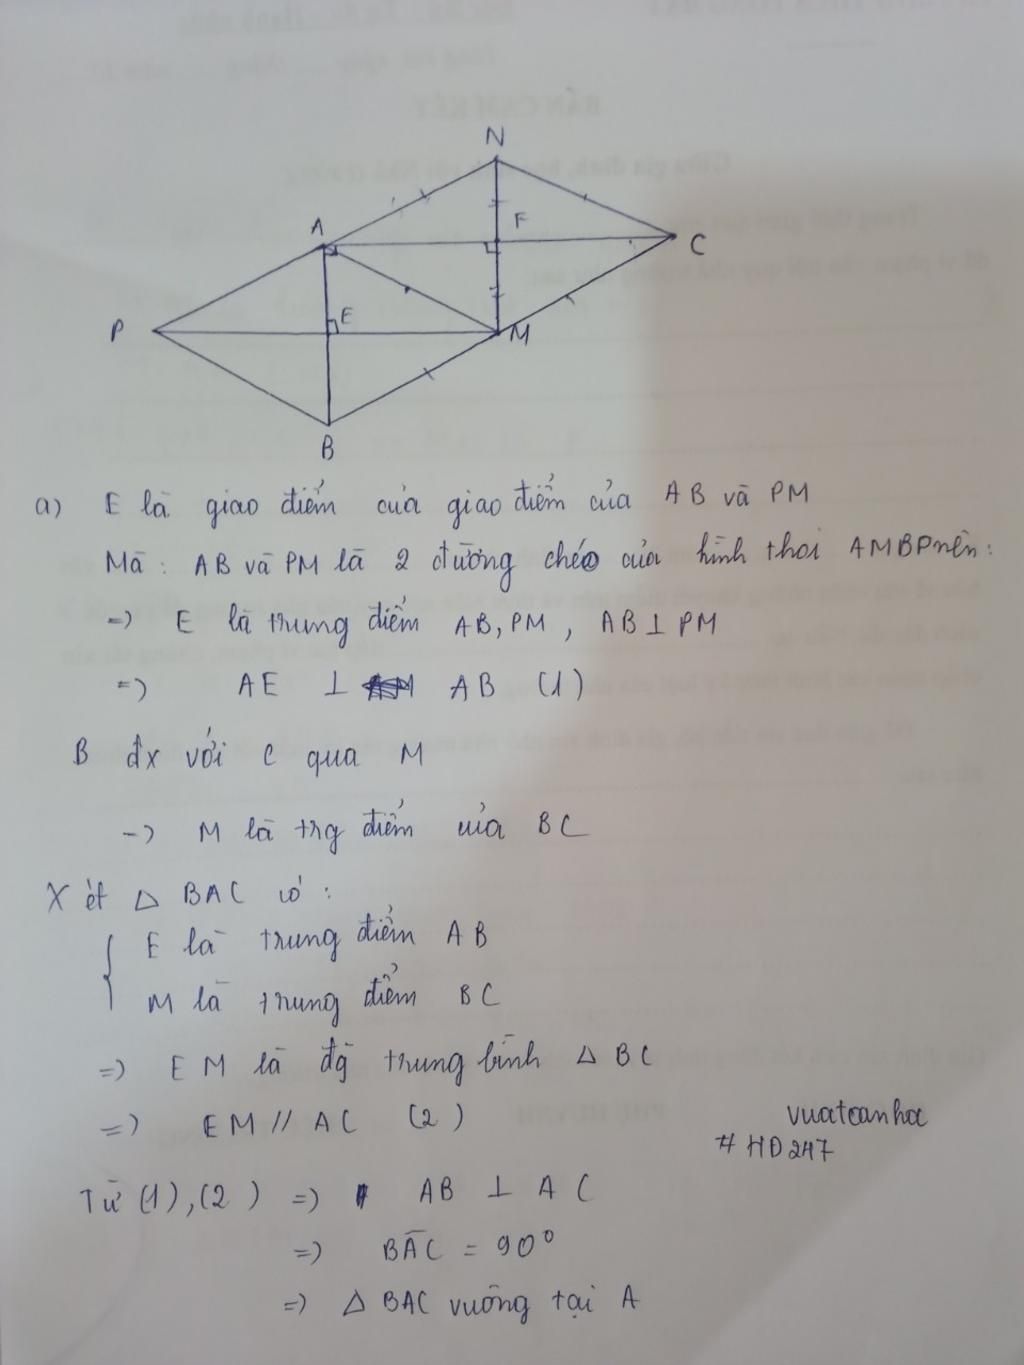 N
A
F
C
P
E
M
B
a) E là giao điểm của giao điểm của AB và PM
Mà : AB và PM là 2 đường chéo của hình thoi AMBP nên :
=> E là trung điểm AB, PM , AB ⊥ PM
=> AE ⊥ AB (1)
B đx với C qua M
-> M là trg điểm của BC
Xét △ BAC có :
E là trung điểm AB
M là trung điểm BC
=> EM là đg trung bình △ BC
=> EM // AC (2)
vuatoanhoc
# HD247
Từ (1), (2) => AB ⊥ AC
=> BAC = 90°
=> △ BAC vuông tại A